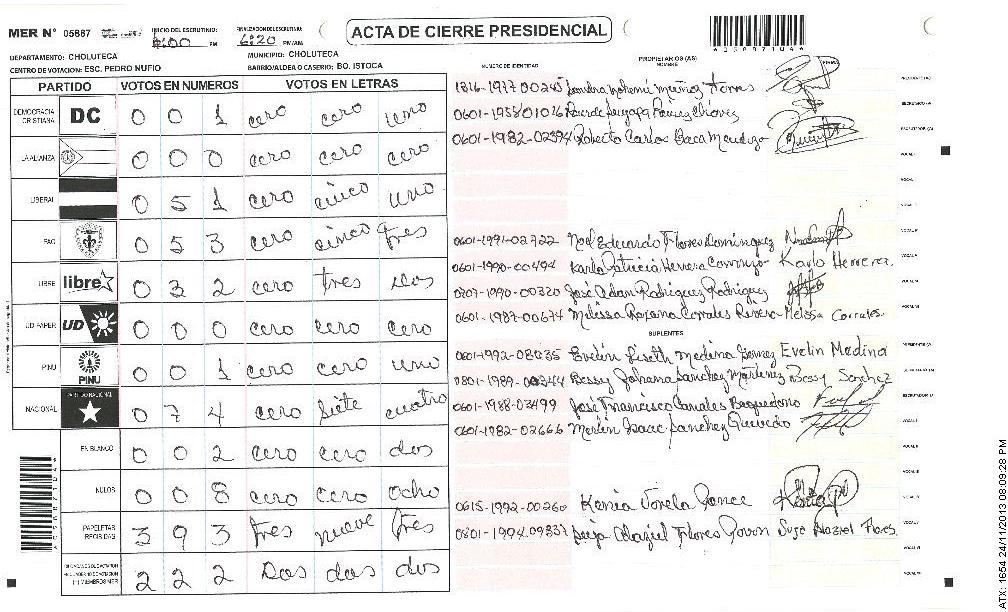 MER N° 05887
INICIO DEL ESCRUTINIO: 6:00 PM
FINALIZACION DEL ESCRUTINIO: 6:20 PM/AM
ACTA DE CIERRE PRESIDENCIAL
DEPARTAMENTO: CHOLUTECA
MUNICIPIO: CHOLUTECA
CENTRO DE VOTACION: ESC. PEDRO NUFIO
BARRIO/ALDEA O CASERIO: BO. ISTOCA
PARTIDO VOTOS EN NUMEROS VOTOS EN LETRAS
DEMOCRACIA CRISTIANA DC 0 0 1 cero cero uno
LA ALIANZA 0 0 0 cero cero cero
LIBERAL 0 5 1 cero cinco uno
PAC 0 5 3 cero cinco tres
LIBRE libre 0 3 2 cero tres dos
UD FAPER UD 0 0 0 cero cero cero
PINU PINU 0 0 1 cero cero uno
NACIONAL PARTIDO NACIONAL 0 7 4 cero siete cuatro
EN BLANCO 0 0 2 cero cero dos
NULOS 0 0 8 cero cero ocho
PAPELETAS RECIBIDAS 3 9 3 tres nueve tres
2 2 2 Dos dos dos
NUMERO DE IDENTIDAD PROPIETARIOS (AS) NOMBRE FIRMA
1816-1977-00245 Sandra Nohemi Muñoz Torres
0601-1958-01016 Chávez
0601-1982-02394 Roberto Carlos Baca Mendoza
0601-1991-02722 Noel Eduardo Flores Dominguez
0601-1990-00494 Karla Patricia Herrera Karla Herrera
0207-1990-00320 José Adan Rodriguez Rodriguez
0601-1987-00674 Melissa Roxana Corrales Rivera Melissa Corrales
SUPLENTES
0601-1992-08035 Evelin Liseth Medina Gomez Evelin Medina
0801-1989-00344 Bessy Johana Sanchez Martinez Bessy Sanchez
0601-1988-03499 José Francisco Canales Baquedano
0601-1982-02666 Merlin Isaac Sanchez Quevedo
0615-1992-00260 Kenia Varela Ponce
0801-1994-09837 Flores Flores
ATX: 1654 24/11/2013 08:09:28 PM